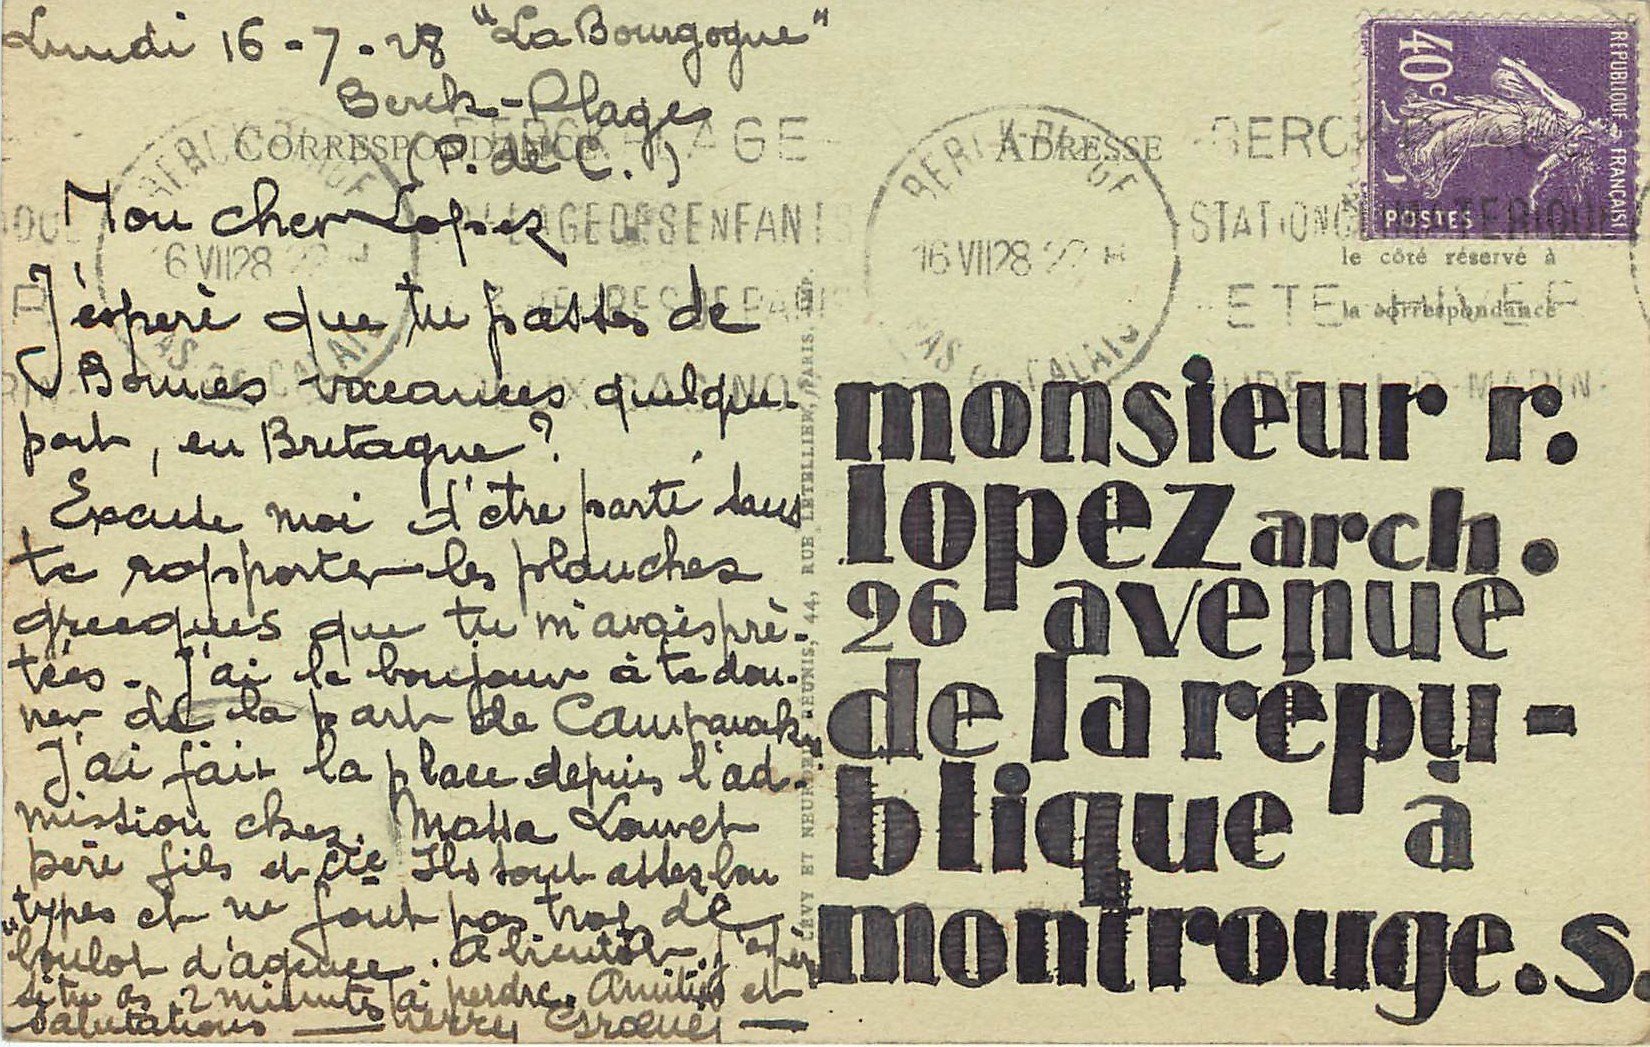 Lundi 16-7-28 "La Bourgogne"
Berck-Plage
(P. de C.)
CORRESPONDANCE
Mon cher Lopez
J'espère que tu passes de
Bonnes vacances quelque
part, en Bretagne ?
Excuse moi d'être parti sans
te rapporter les planches
grecques que tu m'avais prê-
tées - J'ai le bonjour à te don-
ner de la part de
J'ai fait la place depuis l'ad-
mission chez Massa Louvet
père fils et Cie Ils sont assez bon
types et ne font pas trop de
"boulot d'agence. A bientôt, j'espère
si tu as 2 minutes à perdre. Amitiés et
salutations
LÉVY ET NEURDEIN RÉUNIS, 44, RUE LETELLIER, PARIS. IMP.
ADRESSE
le côté réservé à
la correspondance
RÉPUBLIQUE FRANÇAISE
40c
POSTES
BERCK-PLAGE
16 VII 28 22 H
PAS DE CALAIS
BERCK-PLAGE
PLAGE DES ENFANTS
BERCK-PLAGE
16 VII 28 22 H
PAS DE CALAIS
BERCK
STATION
ETE HIVER
monsieur r.
lopez arch.
26 avenue
de la répu-
blique à
montrouge.s.